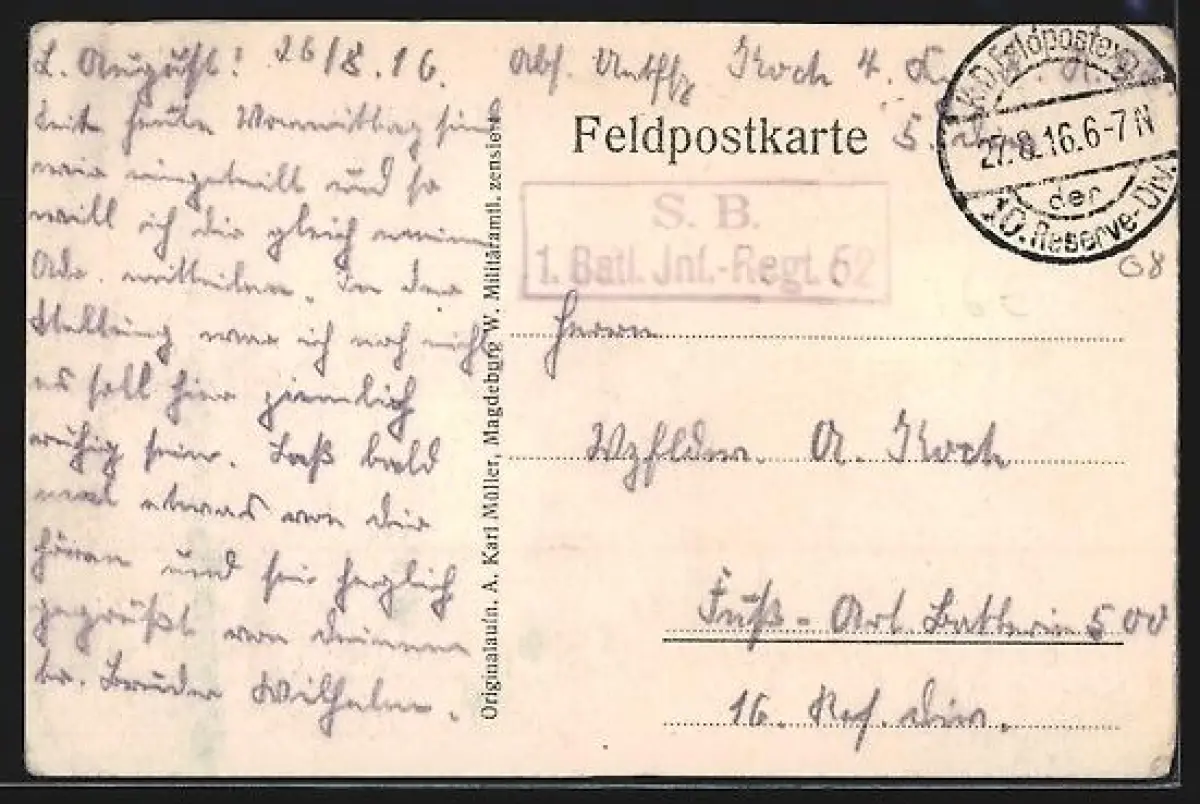 L. August! 26/8.16.
Seit heute Vormittag sind
wir eingeteilt und so
will ich dir gleich meine
Adr. mitteilen. In der
Stellung war ich noch nicht
es soll hier ziemlich
ruhig sein. Laß bald
mal etwas von dir
hören und sei herzlich
gegrüßt von deinem
br. Bruder Wilhelm.
Originalaufn. A. Karl Müller, Magdeburg W. Militäramtl. zensiert
Abs. Untffz Koch 4.
5.
Feldpostkarte
K.D. Feldpostexp.
27.8.16.6-7N
der
10. Reserve-Div.
S. B.
1. Batl. Jnf.-Regt. 52
68
Herrn
Wzfldw. A. Koch
Fuß-Art. Batterie 500
16. Res. div.